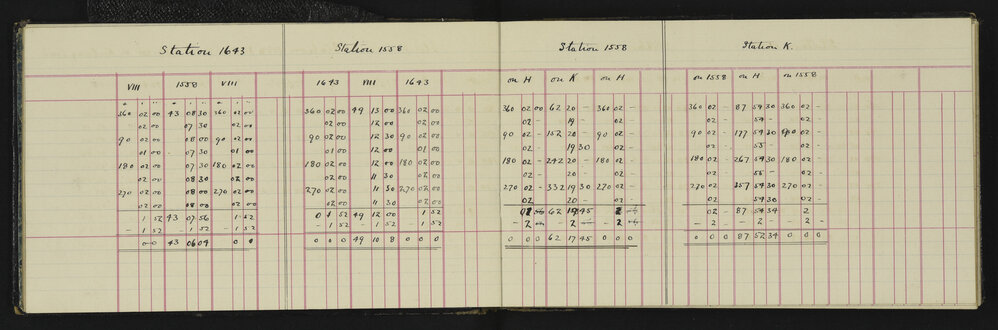 Station 1643
VIII 1558 VIII
° ' " ° ' " ° ' "
360 02 00 43 08 30 360 02 00
02 00 07 30 02 00
90 02 00 08 00 90 02 00
01 00 07 30 01 00
180 02 00 07 30 180 02 00
02 00 08 30 02 00
270 02 00 08 00 270 02 00
02 00 08 00 02 00
1 52 43 07 56 1 52
- 1 52 - 1 52 - 1 52
0 0 43 06 04 0 0
Station 1558
1643 VIII 1643
360 02 00 49 13 00 360 02 00
02 00 12 00 02 00
90 02 00 12 30 90 02 00
01 00 12 00 01 00
180 02 00 12 00 180 02 00
02 00 11 30 02 00
270 02 00 11 30 270 02 00
02 00 11 30 02 00
0 1 52 49 12 00 1 52
- 1 52 - 1 52 - 1 52
0 0 0 49 10 8 0 0 0
Station 1558
on H on K on H
360 02 00 62 20 - 360 02 -
02 - 19 - 02 -
90 02 - 152 20 - 90 02 -
02 - 19 30 02 -
180 02 - 242 20 - 180 02 -
02 - 20 - 02 -
270 02 - 332 19 30 270 02 -
02 - 20 - 02 -
2 62 19 45 2
- 2 - 2 - 2
0 0 0 62 17 45 0 0 0
Station K.
on 1558 on H on 1558
360 02 - 87 54 30 360 02 -
02 - 54 - 02 -
90 02 - 177 54 30 90 02 -
02 - 55 - 02 -
180 02 - 267 54 30 180 02 -
02 - 55 - 02 -
270 02 - 357 54 30 270 02 -
02 - 54 30 02 -
02 - 87 54 34 2
- 2 - - 2 - - 2
0 0 0 87 52 34 0 0 0